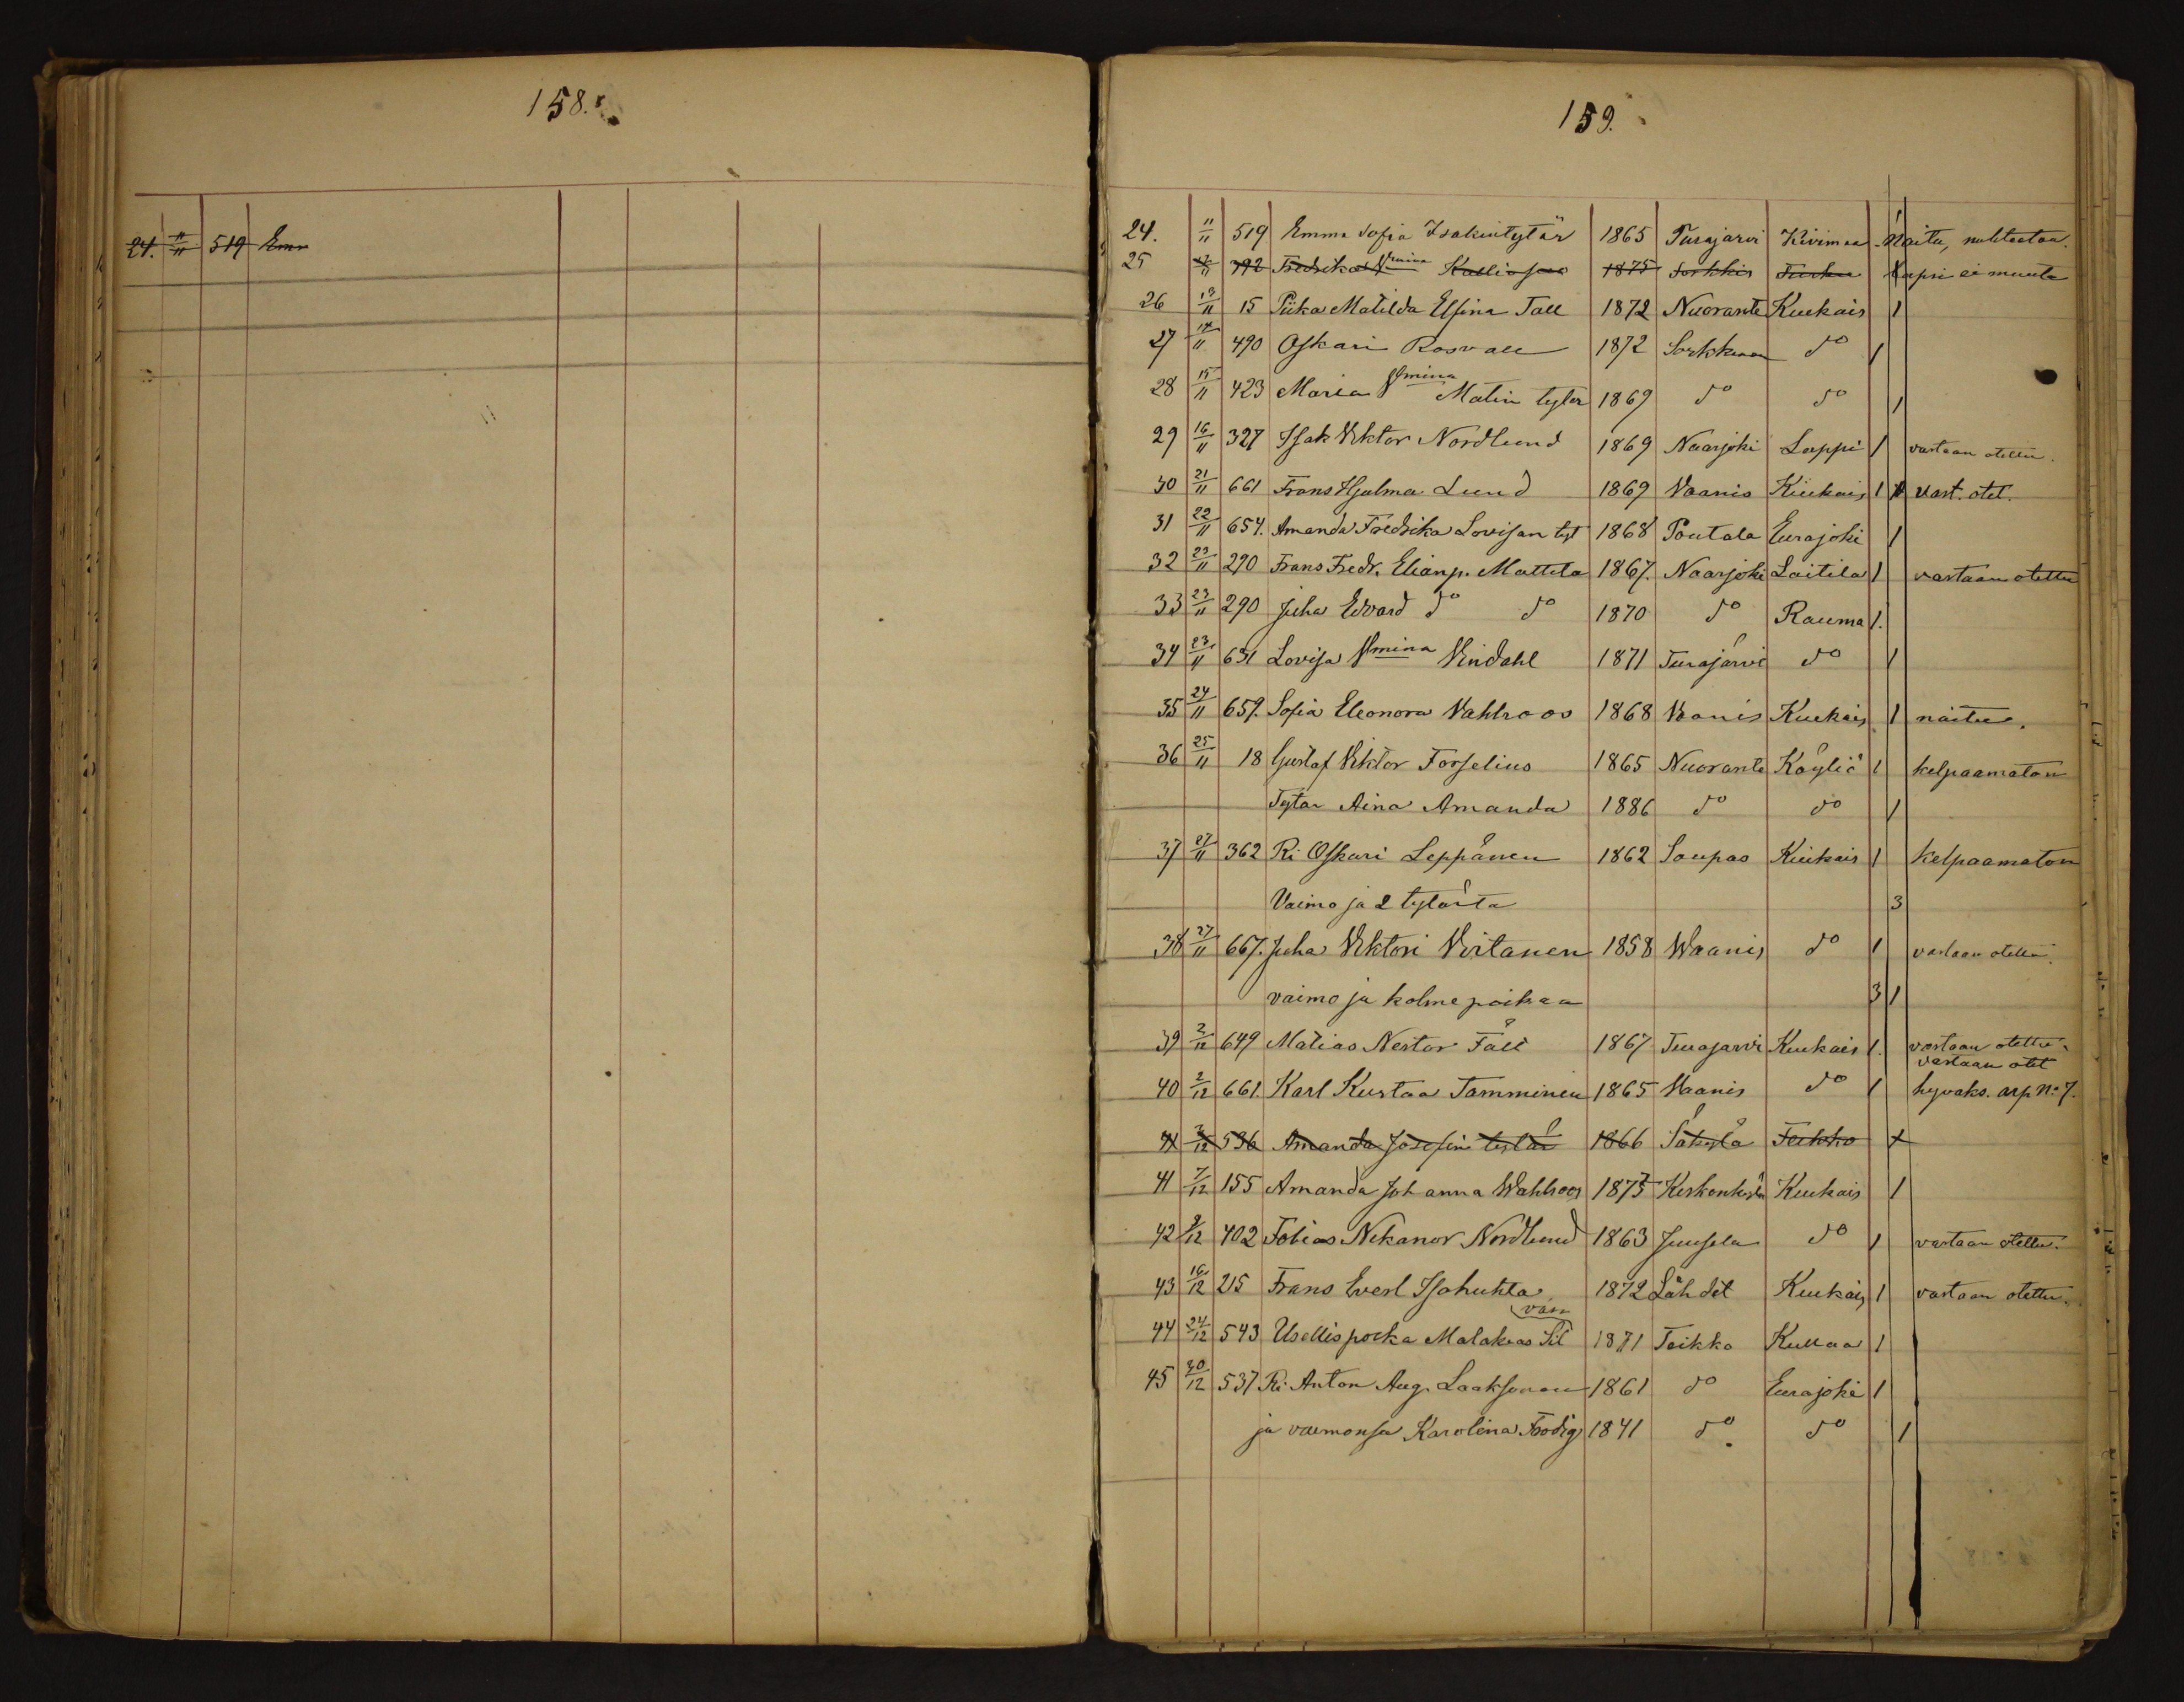 158.
24. 11/11 519 Emm
159.
24. 11/11 519 Emma Sofia Isakintytär 1865 Turajärvi Kivimaa 1 Naitu, nuhteeton
25 12/11 792 Fredrika Vmina 1875 Sorkkis Turku 1 ei muuta
26 13/11 15 Piika Matilda Elfina Tall 1872 Nuorante Kiukais 1
27 14/11 490 Oskari Rosvall 1872 Sorkkinen do 1
28 15/11 423 Maria Vmina Matin tytär 1869 do do 1
29 16/11 327 Isak Viktor Nordlund 1869 Naarjoki Lappi 1 vastaan otettu.
30 21/11 661 Frans Hjalmar Lund 1869 Vaanis Kiukais 1 vast. otet.
31 22/11 654. Amanda Fredrika Lovisan tyt 1868 Poutala Eurajoki 1
32 23/11 290 Frans Fredr. Elianp. Mattila 1867. Naarjoki Laitila 1 vastaan otettu
33 23/11 290 Juha Edvard do do 1870 do Rauma 1.
34 23/11 631 Lovisa Vmina Vindahl 1871 Turajärvi do 1
35 24/11 659. Sofia Eleonora Vahlroos 1868 Vaanis Kiukais 1 naitu.
36 25/11 18 Gustaf Viktor Forselius 1865 Nuorante Köyliö 1 kelpaamaton
Tytär Aina Amanda 1886 do do 1
37 27/11 362 Ri Oskari Leppänen 1862 Soupas Kiukais 1 kelpaamaton
Vaimo ja 2 tytärtä 3
38 27/11 667. Juha Viktori Virtanen 1858 Waanis do 1 vastaan otettu.
vaimo ja kolme poikaa 3 1
39 2/12 649 Matias Nestor Fält 1867 Turajärvi Kiukais 1. vastaan otettu.
vastaan otet
40 2/12 661. Karl Kustaa Tamminen 1865 Vaanis do 1 hyväks. arp No 7.
41 2/12 536 Amanda Josefin tytär 1866 Säkylä Feikko 1
41 7/12 155 Amanda Johanna Wahlroos 1873 Keskenkylä Kiukais 1
42 9/12 402 Tobias Nikanor Nordlund 1863 Juusela do 1 vastaan otettu.
43 16/12 215 Frans Everl Isohuhta 1872 Lähdet Kiukais 1 vastaan otettu.
van
44 24/12 543 Usellispoika Malakias Sil 1871 Teikko Kullaa 1
45 30/12 537 Ri Anton Aug. Laaksonen 1861 do Eurajoki 1
ja vaimonsa Karolina Frodig 1841 do do 1